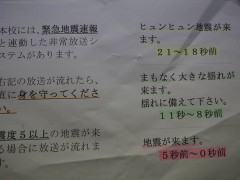 本校には、緊急地震速報
と連動した非常放送シ
ステムがあります。
右記の放送が流れたら、
直に身を守ってくださ
い。
震度５以上の地震が来
る場合に放送が流れま
ヒュンヒュン地震が来
ます。
２１～１８秒前
まもなく大きな揺れが
来ます。
揺れに備えて下さい。
１１秒～８秒前
地震が来ます。
５秒前～０秒前